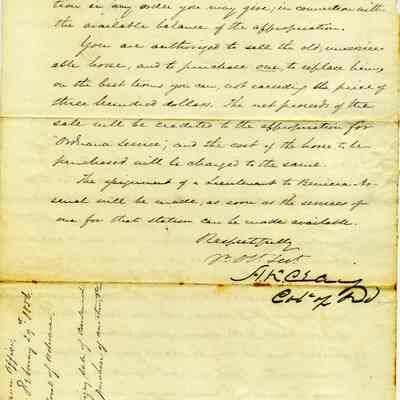 tion in any order you may give, in connection with
the available balance of the appropriation.
You are authorized to sell the old, unservice
able horse, and to purchase one, to replace him,
on the best terms you can, not exceeding the price of
three hundred dollars. The net proceeds of the
sale will be credited to the appropriation for
"Ordnance service", and the cost of the horse to be
purchased will be charged to the same.
The assignment of a Lieutenant to Benicia Ar-
senal will be made, as soon as the services of
one for that station can be made available.
Respectfully
Yr. Obt. Svt.
H K Craig
Col. of Ord
Office
February 29th
of Ordnance
sale of
purchase of another